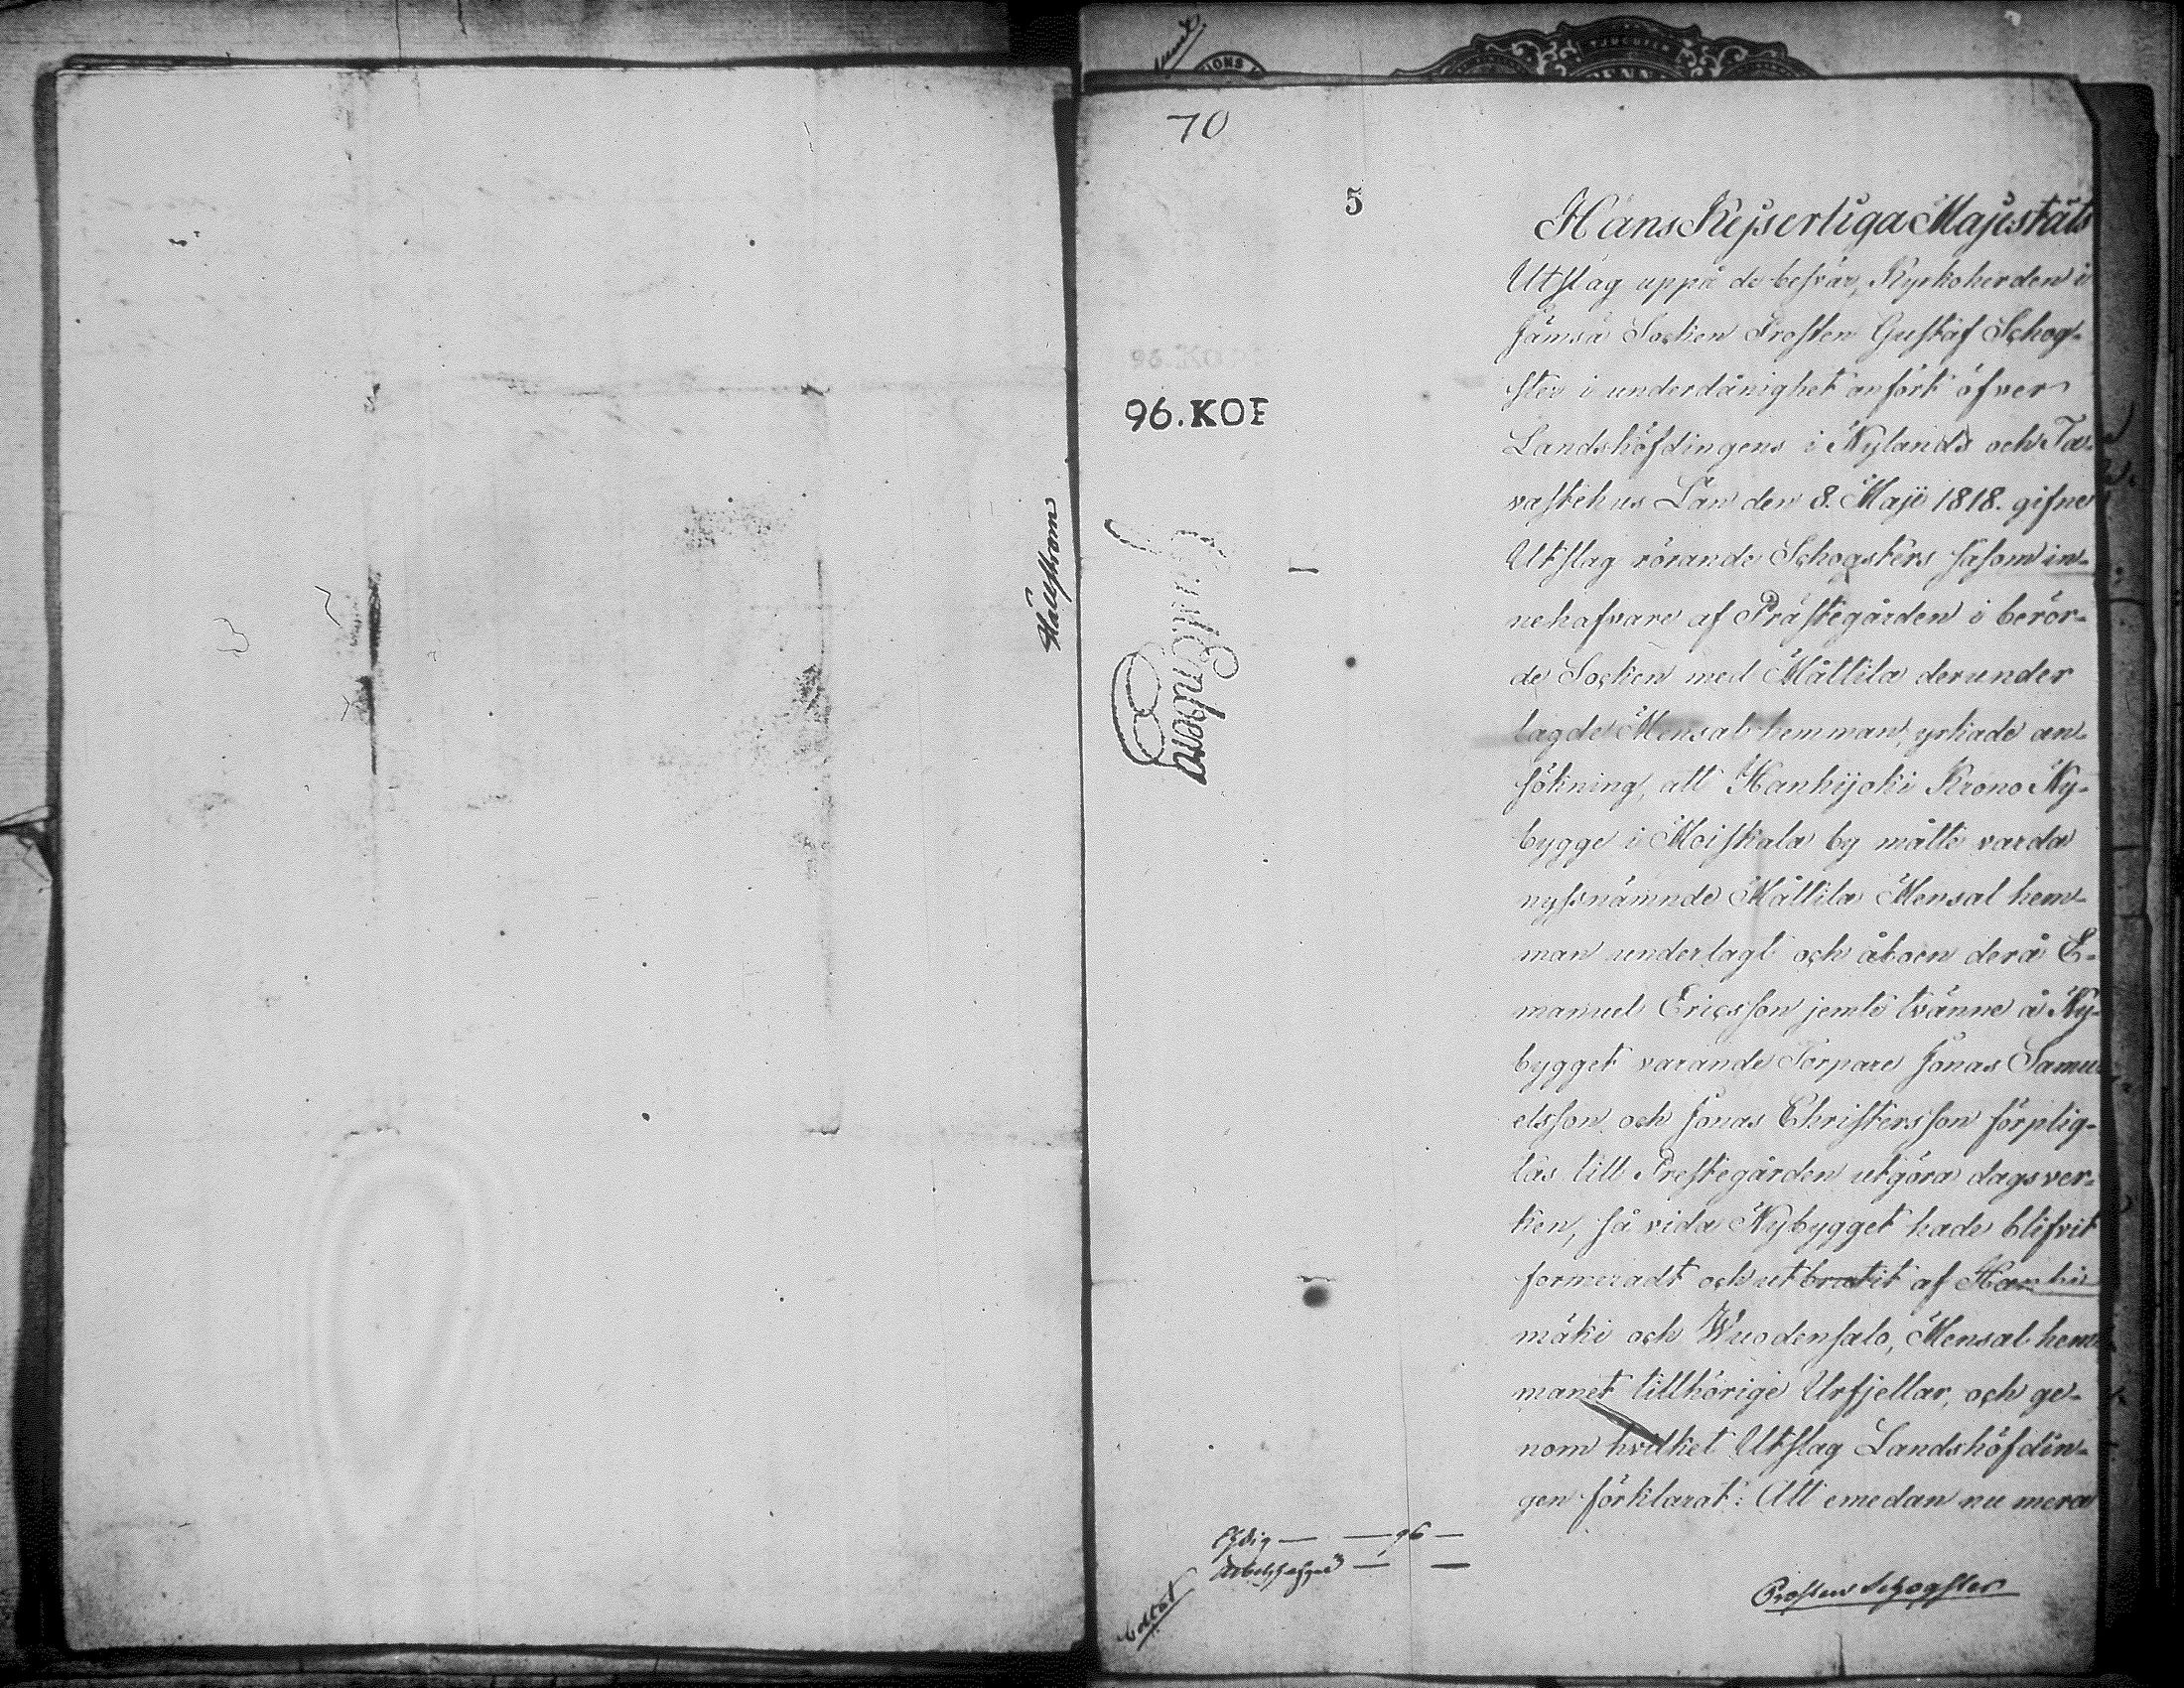 70
5
96.KOF
Hällström
Hans Kejserliga Majestäts
Utslag uppå de besvär, Kyrkoherden i
Jämsä Socken Prosten Gustaf Schog-
ster i underdånighet anfört öfver
Landshöfdingens i Nylands och Ta-
vastehus Län den 8. Maji 1818. gifne
Utslag rörande Schogsters såsom in-
nehafvare af Prästegården i berör-
de Socken med Mattila derunder
lagde Mensal hemman, yrkade an-
sökning, att Hanhijoki Krono Ny-
bygge i Moiskala by måtte varda
nyssnämnde Mattila Mensal hem-
man underlagt och åboen derå E-
manuel Ericsson jemte tvänne å Ny-
bygget varande Torpare Jonas Samu-
elsson och Jonas Christersson förplig-
tas till Prestegården utgöra dagsver-
ken, så vida Nybygget hade blifvit
formeradt och utbrutit af Hanhi-
mäki och Wuodensalo, Mensal hem-
manet tillhörige Urfjellar, och ge-
nom hvilket Utslag Landshöfdin-
gen förklarat: Att emedan nu mera
96
Prosten Schogster